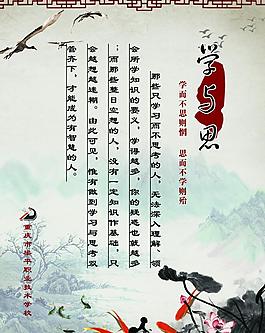 学与思
学而不思则惘
思而不学则殆
那些只学习而不思考的人，无法深入理解、领
会所学知识的要义，学得越多，你的疑惑也就越多
；而那些整日空想的人，没有一定知识作基础，只
会越想越迷糊。由此可见，惟有做到学习与思考双
管齐下，才能成为有智慧的人。
重庆市 平职业技术学校